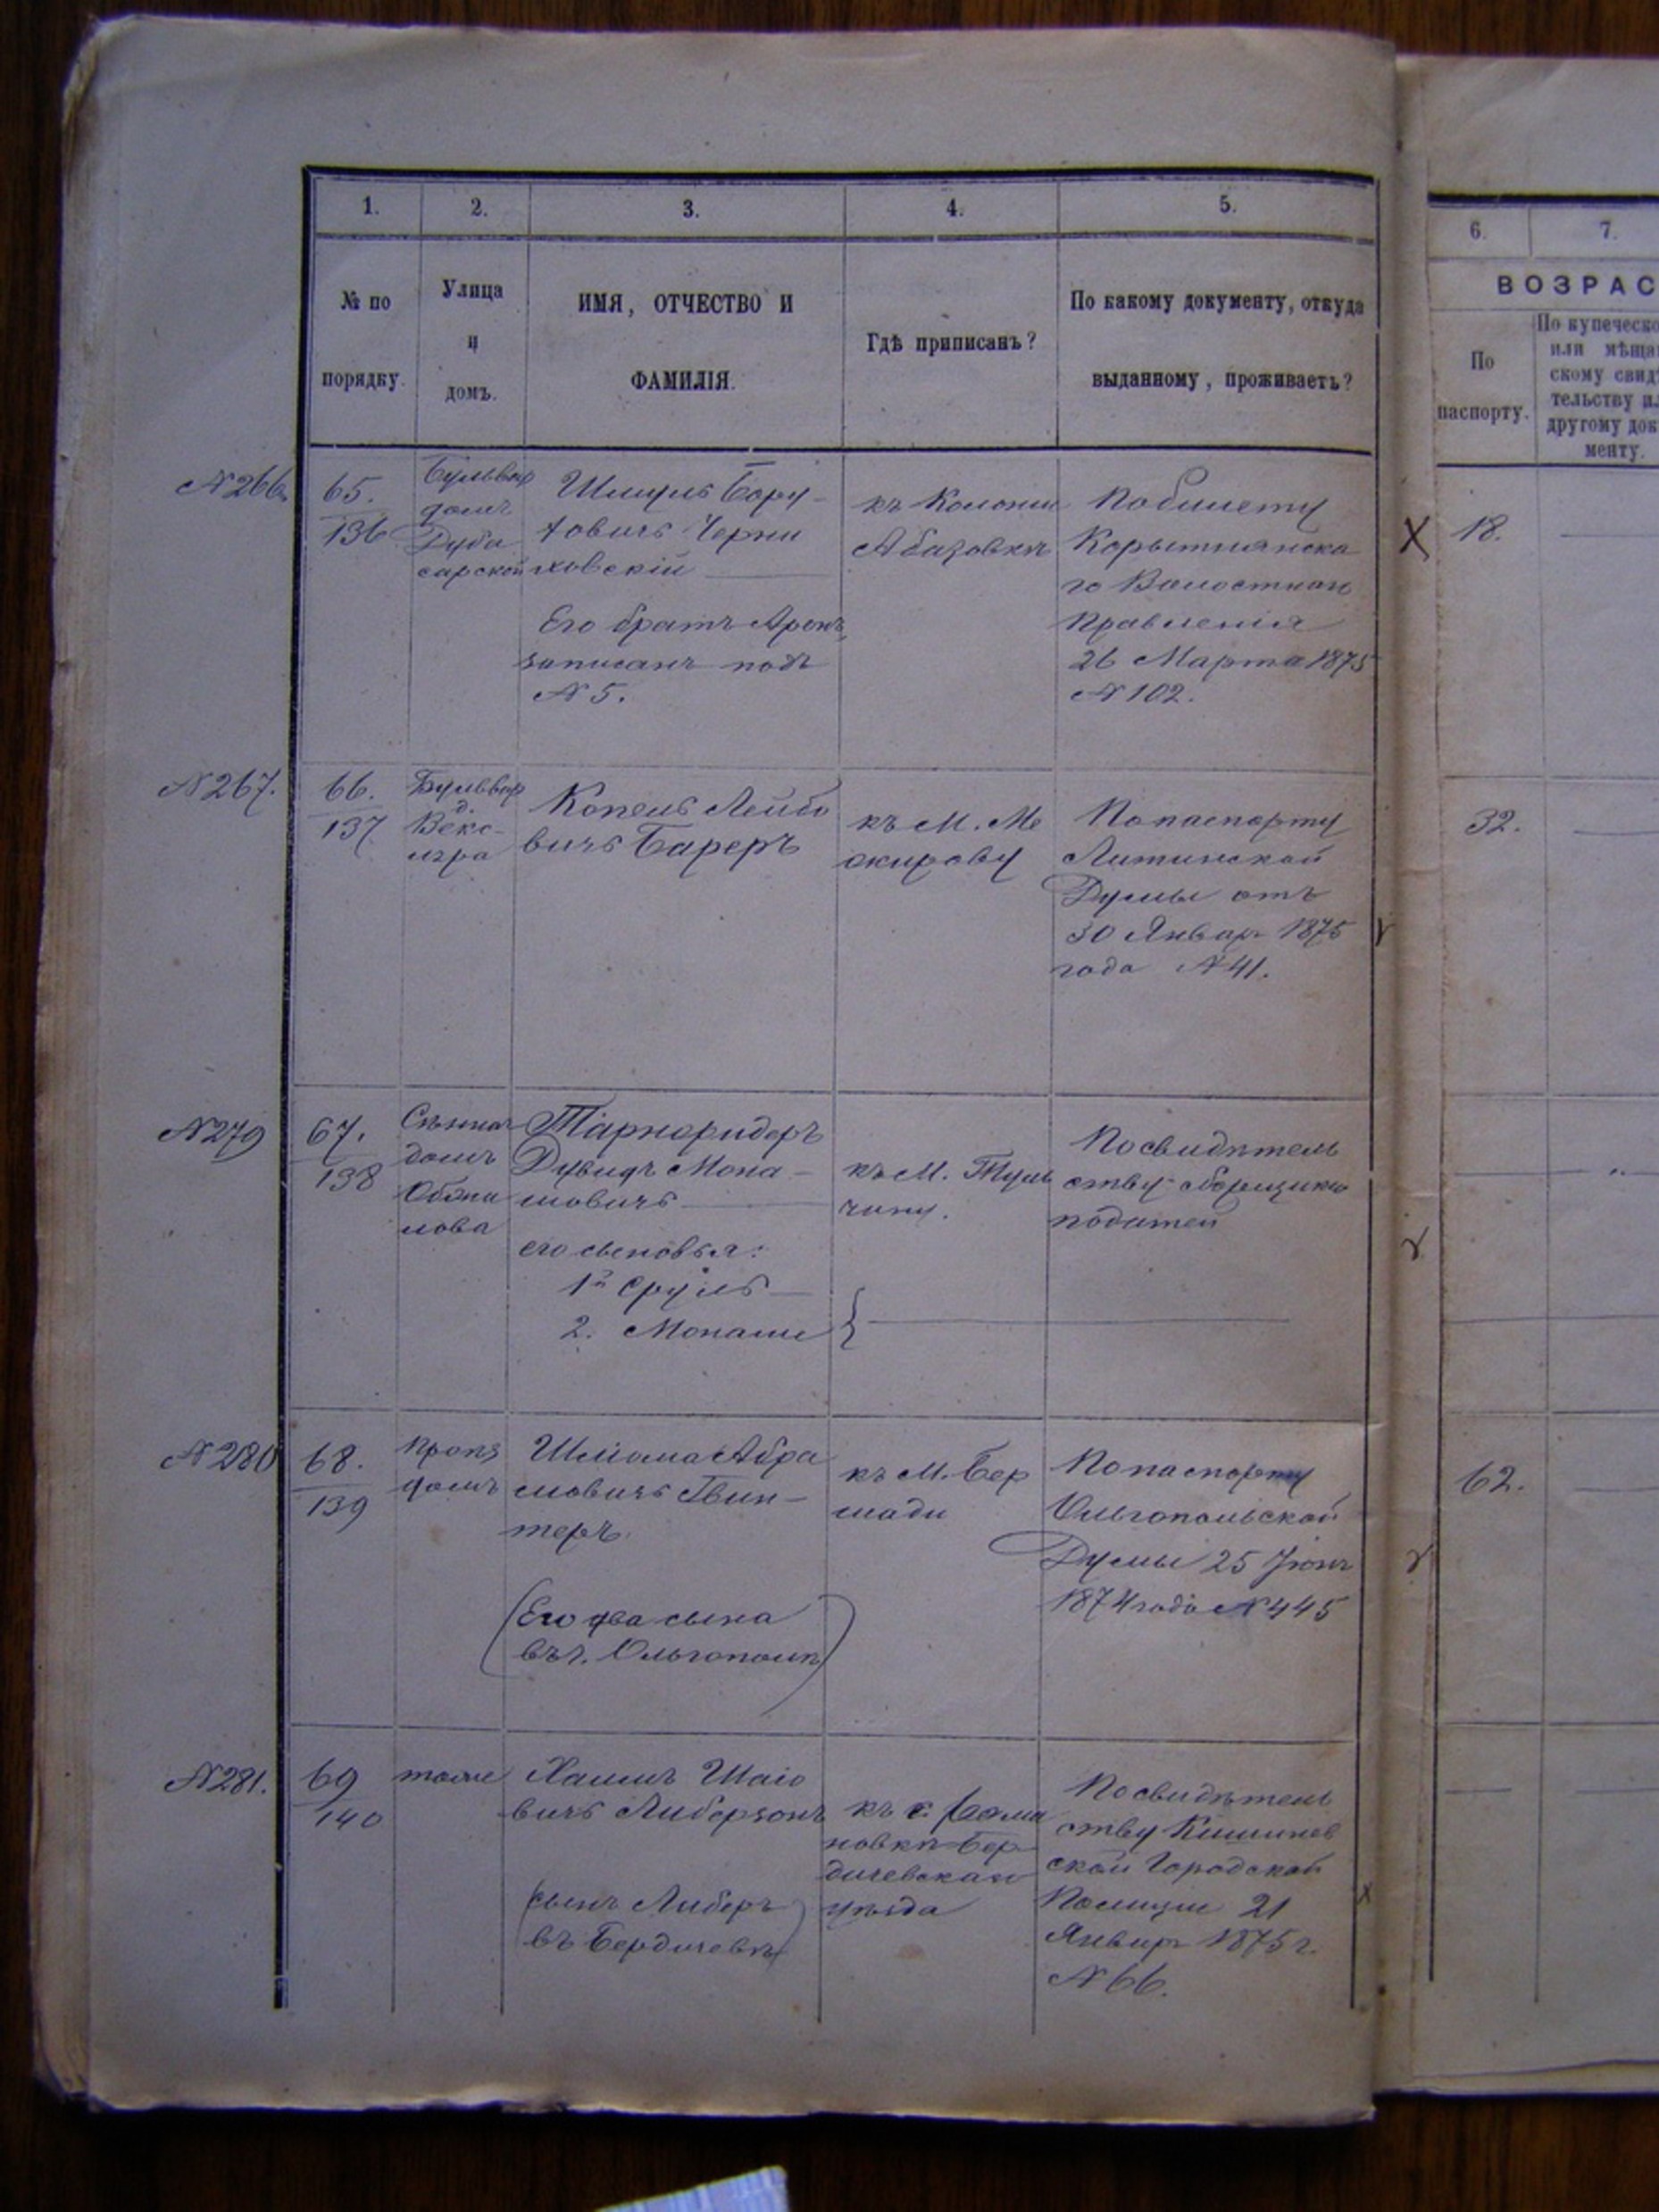 1. 2. 3. 4. 5.
№ по порядку.
Улица и домъ.
ИМЯ, ОТЧЕСТВО И ФАМИЛІЯ.
Гдѣ приписанъ?
По какому документу, откуда выданному, проживаетъ?
6. 7.
ВОЗРАС
По паспорту.
По купеческо
или мѣща
скому свидѣ
тельству ил
другому док
менту.
№ 266.
65.
136
Бульвар
домъ
Дуба
сарской
Шмуль Бору-
ховичъ Черни
ховскій
Его братъ Аронъ
записанъ подъ
№ 5.
къ Колоніи
Абазовкѣ
По билету
Корытнянска
го Волостнаго
Правленія
26 Марта 1875
№ 102.
18.
№ 267.
66.
137
Бульвар
д.
Векс-
лера
Копель Лейбо
вичъ Бареръ
къ М. Ме
жирову
По паспорту
Литинской
Думы отъ
30 Январ 1875
года № 41.
32.
№ 279
67.
138
домъ
Тарноридеръ
Дувидъ Мона-
шовичъ
его сыновья:
1й Сруль
2. Монаше
къ М. Туль
чину.
По свидѣтель
ству сборщика
податей
№ 280
68.
139
домъ
Шлiома Абра
мовичъ Гвин-
теръ.
(Его два сына
въ г. Ольгополѣ)
къ М. Бер
шади
По паспорту
Ольгопольской
Думы 25 Іюнъ
1874 года № 445
62.
№ 281.
69
140
тоже
Хаимъ Шаіо
вичъ Либерзонъ
(сынъ Либеръ
въ Бердичевѣ)
къ с.
новкѣ Бер
дичевскаго
уѣзда
По свидѣтель
ству Кишинев
ской Городской
Полиціи 21
Январ 1875 г.
№ 66.